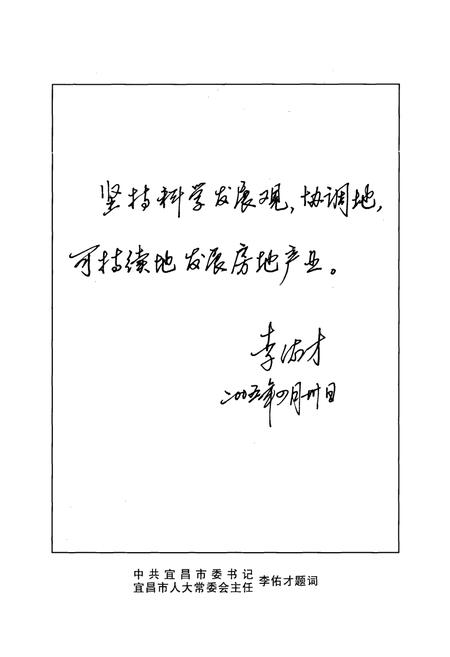 坚持科学发展观，协调地，
可持续地发展房地产业。
李佑才
二〇〇五年四月卅日
中共宜昌市委书记
宜昌市人大常委会主任 李佑才题词